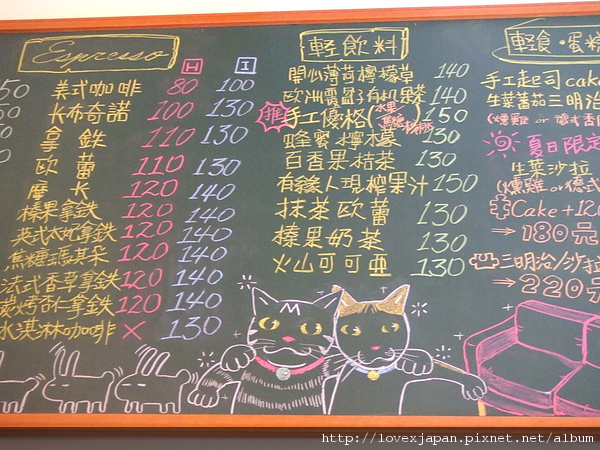 Espresso
H I
美式咖啡 80 100
卡布奇諾 100 130
拿鉄 110 130
歐蕾 110 130
摩卡 120 140
榛果拿鉄 120 140
英式太妃拿鉄 120 140
焦糖瑪其朵 120 140
法式香草拿鉄 120 140
炭烤杏仁拿鉄 120 140
冰淇淋咖啡 × 130
50
50
輕飲料
開心薄荷檸檬草 140
歐洲靈子有機果茶 140
推 手工優格(水果 蔦越莓) 150
蜂蜜檸檬 130
百香果桔茶 130
有緣人現榨果汁 150
抹茶歐蕾 130
榛果奶茶 130
火山可可亜 130
輕食·蛋糕
手工起司cake
生菜番茄三明治
(燻雞 or 德式香
夏日限定
生菜沙拉
(燻雞or德式
Cake+120
→180元
三明治/沙拉
→220元
http://lovexjapan.pixnet.net/album